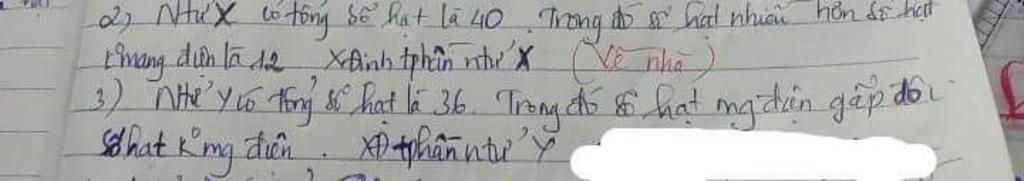 2) NtửX có tổng số hạt là 40. Trong đó số hạt nhiều hơn số hạt
kºmang điện là 12 Xđịnh tphần ntử X (Về nhà)
3) Ntử Y có tổng số hạt là 36. Trong đó số hạt mg điện gấp đôi
số hạt kº mg điện. XĐ tphần ntử Y